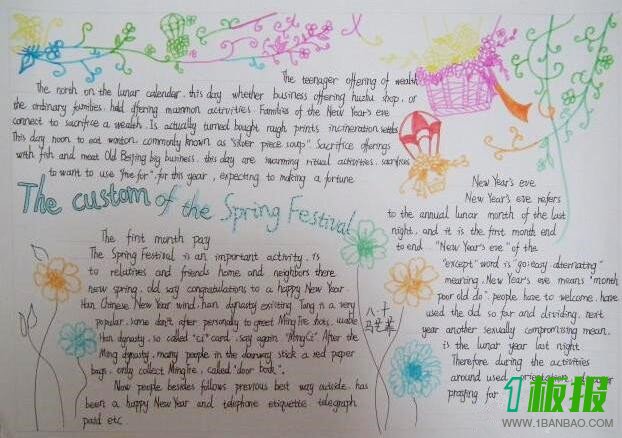 The teenager offering of wealth
The north on the lunar calendar. this day whether business offering huzhu shop, or
the ordinary families. hald offering mammon activities. Families of the New Year's eve
connect to sacrifice a wealth. Is actually turned bought rough prints incineration
This day noon to eat wonton, commonly known as "silver piece soup". Sacrifice offerings
with fish and meat Old Beijing big business. this day are swarming ritual activities. sacrifices
to want to use "five for" for this year, expecting to making a fortune
The custom of the Spring Festival
The first month pay
The Spring Festival is an important activity. is
to relatives and friends home and neighbors there
new spring. old say congratulations to a happy New Year.
Han Chinese New Year wind. han dynasty existing. Tang is a very
popular. some don't after personally to greet MingTie hots. usable
Han dynasty, so called "ci" card. say again "MingCi". After the
Ming dynasty, many people in the doorway stick a red paper
bags, only collect MingTie, called "door book".
Now people besides follows previous best way outside. has
been a happy New Year and telephone etiquette telegraph
paid etc.
New Year's eve
New Year's eve refers
to the annual lunar month of the last
night, and it is the first month end
to end. "New Year's eve" of the
"except" word is "go:easy alternating"
meaning. New Year's eve means "month
poor old do". people have to welcome. have
used the old so far and dividing. next
year another sexually compromising mean.
is the lunar year last night
Therefore during the activities
around used
praying for
八、十
马艺菲
1板报
WWW.1BANBAO.COM